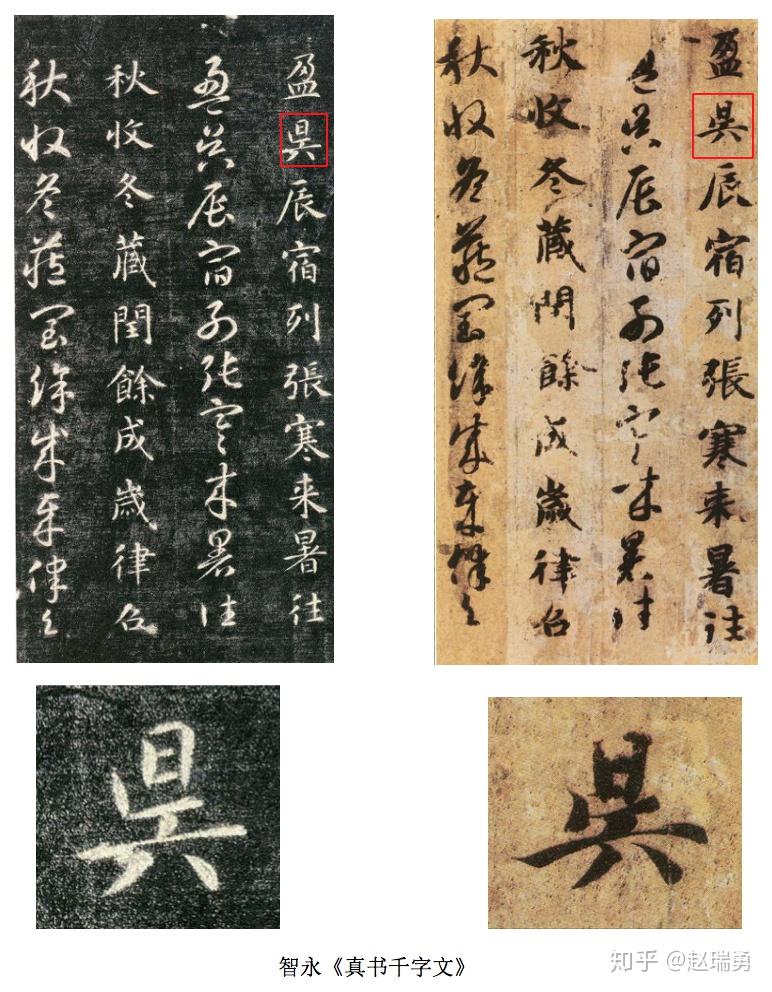 盈昃辰宿列張寒来暑往
盈昃辰宿列張寒来暑往
秋收冬藏閏餘成歲律召
秋收冬藏閏餘成歲律召
盈昃辰宿列張寒来暑往
盈昃辰宿列張寒来暑往
秋收冬藏閏餘成歲律召
秋收冬藏閏餘成歲律召
昃
昃
智永《真书千字文》
知乎 @赵瑞勇